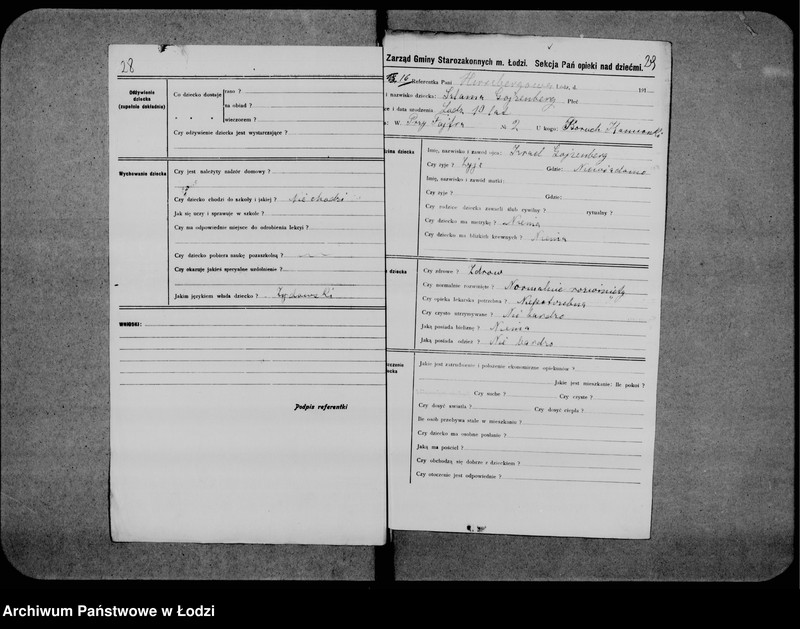 28
Odżywienie
dziecka
(zupełnie dokładnie)
Co dziecko dostaje
rano ?
na obiad ?
wieczorem ?
Czy odżywienie dziecka jest wystarczające ?
Wychowanie dziecka
Czy jest należyty nadzór domowy ?
Czy dziecko chodzi do szkoły i jakiej ? Nie chodzi
Jak się uczy i sprawuje w szkole ?
Czy ma odpowiednie miejsce do odrobienia lekcyi ?
Czy dziecko pobiera naukę pozaszkolną ?
Czy okazuje jakieś specyalne uzdolnienie ?
Jakim językiem włada dziecko ? Żydowski
WNIOSKI:
Podpis referentki
29
Zarząd Gminy Starozakonnych m. Łodzi. Sekcja Pań opieki nad dziećmi.
16 Referentka Pani Łódź, d. 191
i nazwisko dziecka: Szlama Płeć
ce i data urodzenia Łódź 10 lat
W. № 2 U kogo: Boruch
Imię, nazwisko i zawód ojca: Izrael
Czy żyje ? Żyje Gdzie: Niewiadomo
Imię, nazwisko i zawód matki:
Czy żyje ? Gdzie:
Czy rodzice dziecka zawarli ślub cywilny ? rytualny ?
Czy dziecko ma metrykę ? Niema
Czy dziecko ma bliskich krewnych ? Niema
dziecka
Czy zdrowe ? Zdrow
Czy normalnie rozwinięte ? Normalnie rozwinięty
Czy opieka lekarska potrzebna ? Niepotrzebna
Czy czysto utrzymywane ? Nie bardzo
Jaką posiada bieliznę ? Niema
Jaką posiada odzież ? Nie bardzo
Jakie jest zatrudnienie i położenie ekonomiczne opiekunów ?
Jakie jest mieszkanie: Ile pokoi ?
Czy suche ? Czy czyste ?
Czy dosyć światła ? Czy dosyć ciepła ?
Ile osób przebywa stale w mieszkaniu ?
Czy dziecko ma osobne posłanie ?
Jaką ma pościel ?
Czy obchodzą się dobrze z dzieckiem ?
Czy otoczenie jest odpowiednie ?
Archiwum Państwowe w Łodzi